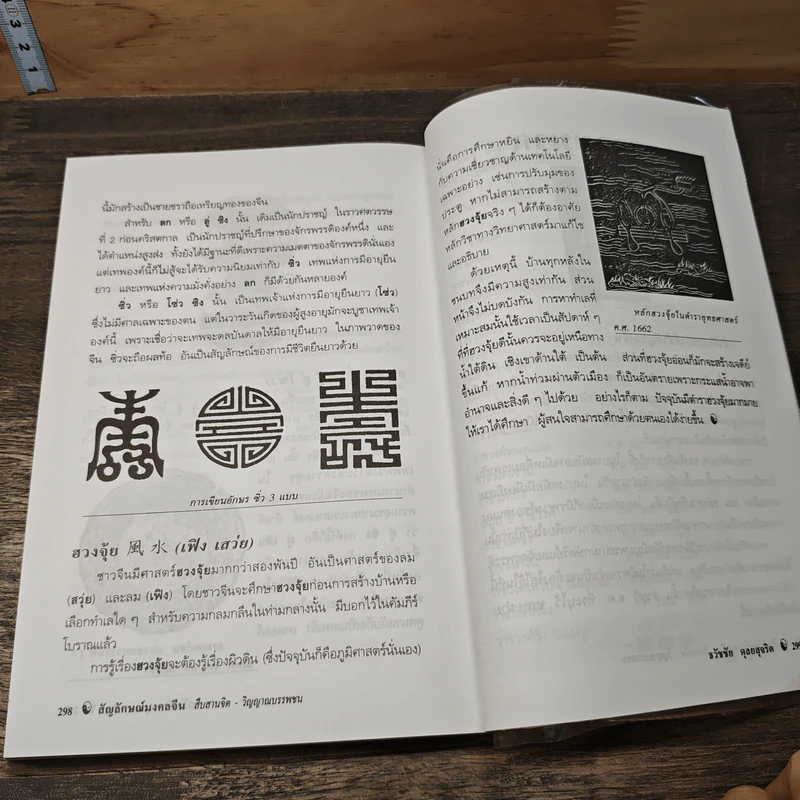 นี้มักสร้างเป็นชายชราถือเหรียญทองของจีน
สำหรับ ลก หรือ ลู่ ซิง นั้น เดิมเป็นนักปราชญ์ ในราวศตวรรษ
ที่ 2 ก่อนคริสตกาล เป็นนักปราชญ์ที่ปรึกษาของจักรพรรดิองค์หนึ่ง และ
ได้ตำแหน่งสูงส่ง ทั้งยังได้มีฐานะที่ดีเพราะความเมตตาของจักรพรรดินั่นเอง
แต่เทพองค์นี้ก็ไม่สู้จะได้รับความนิยมเท่ากับ ซิ่ว เทพแห่งการมีอายุยืน
ยาว และเทพแห่งความมั่งคั่งอย่าง ลก ก็มีด้วยกันหลายองค์
ซิ่ว หรือ โซ่ว ซิง นั้น เป็นเทพเจ้าแห่งการมีอายุยืนยาว (โซ่ว)
ซึ่งไม่มีศาลเฉพาะของตน แต่ในวาระวันเกิดของผู้สูงอายุมักจะบูชาเทพเจ้า
องค์นี้ เพราะเชื่อว่าจะเทพจะดลบันดาลให้มีอายุยืนยาว ในภาพวาดของ
จีน ซิ่วจะถือผลท้อ อันเป็นสัญลักษณ์ของการมีชีวิตยืนยาวด้วย
การเขียนอักษร ซิ่ว 3 แบบ
ฮวงจุ้ย 風水 (เฟิง เสว่ย)
ชาวจีนมีศาสตร์ฮวงจุ้ยมากกว่าสองพันปี อันเป็นศาสตร์ของลม
(สวุ่ย) และลม (เฟิง) โดยชาวจีนจะศึกษาฮวงจุ้ยก่อนการสร้างบ้านหรือ
เลือกทำเลใด ๆ สำหรับความกลมกลืนในท่ามกลางนั้น มีบอกไว้ในคัมภีร์
โบราณแล้ว
การรู้เรื่องฮวงจุ้ยจะต้องรู้เรื่องผิวดิน (ซึ่งปัจจุบันก็คือภูมิศาสตร์นั่นเอง)
298 สัญลักษณ์มงคลจีน สืบสานจิต - วิญญาณบรรพชน
นั่นคือการศึกษาหยิน และหยาง
กับความเชี่ยวชาญด้านเทคโนโลยี
เฉพาะอย่าง เช่นการปรับมุมของ
ประตู หากไม่สามารถสร้างตาม
หลักฮวงจุ้ยจริง ๆ ได้ก็ต้องอาศัย
หลักวิชาทางวิทยาศาสตร์มาแก้ไข
และอธิบาย
ด้วยเหตุนี้ บ้านทุกหลังใน
ชนบทจึงมีความสูงเท่ากัน ส่วน
หน้าจึงไม่บดบังกัน การหาทำเลที่
เหมาะสมนั้นใช้เวลาเป็นสัปดาห์ ๆ
ที่ที่ฮวงจุ้ยดีนั้นควรจะอยู่เหนือทาง
น้ำใต้ดิน เชิงเขาด้านใต้ เป็นต้น ส่วนที่ฮวงจุ้ยอ่อนก็มักจะสร้างเจดีย์
ขึ้นแก้ หากน้ำท่วมผ่านตัวเมือง ก็เป็นอันตรายเพราะกระแสน้ำอาจพา
อำนาจและสิ่งดี ๆ ไปด้วย อย่างไรก็ตาม ปัจจุบันมีตำราฮวงจุ้ยมากมาย
ให้เราได้ศึกษา ผู้สนใจสามารถศึกษาด้วยตนเองได้ง่ายขึ้น
หลักฮวงจุ้ยในตำรายุทธศาสตร์
ค.ศ. 1662
ธวัชชัย ดุลยสุจริต 299
3
2
1